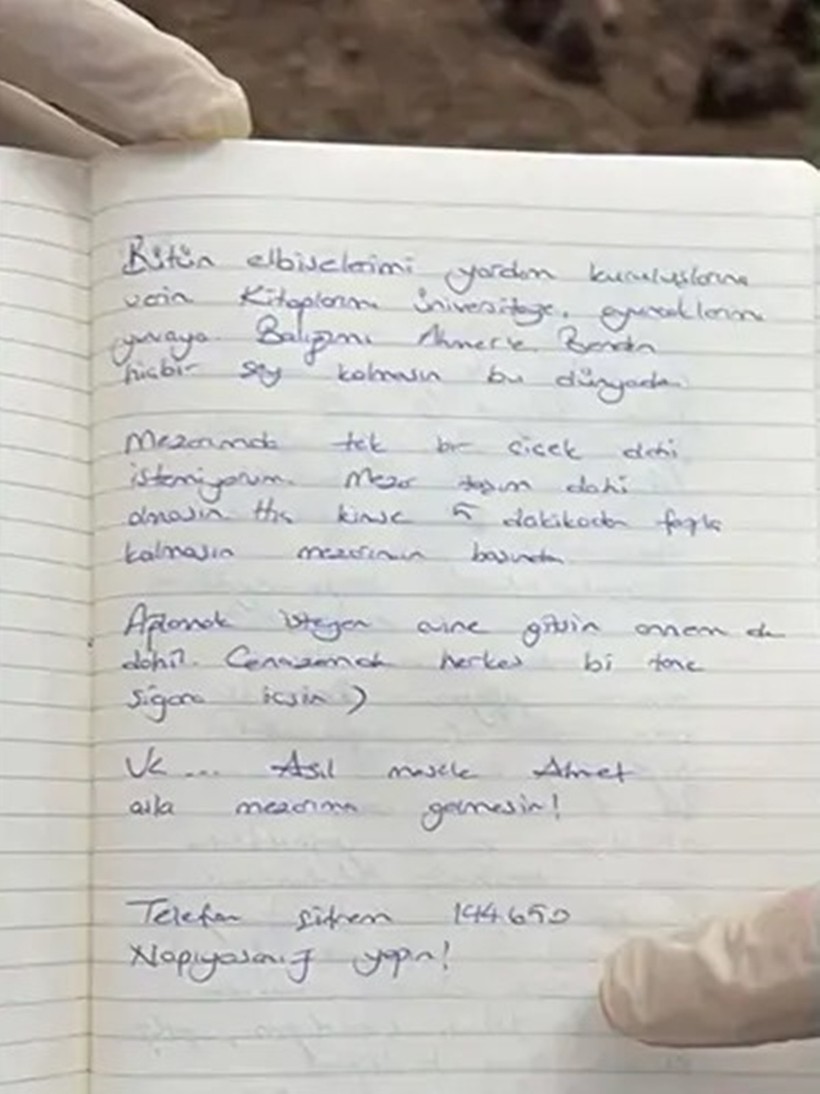 Bütün elbiselerimi yardım kuruluşlarına
verin Kitaplarımı üniversiteye, oyuncaklarımı
yuvaya. Balığımı Ahmet'e. Benden
hiçbir şey kalmasın bu dünyada.
Mezarımda tek bir çicek dahi
istemiyorum. Mezar taşım dahi
olmasın. Hiç kimse 5 dakikadan fazla
kalmasın mezarımın başında.
Ağlamak isteyen evine gitsin annem de
dahil. Cenazemde herkes bi tane
sigara içsin )
Ve... Asıl mesele Ahmet
asla mezarıma gelmesin!
Telefon şifrem 144.650
Napıyosanız yapın!